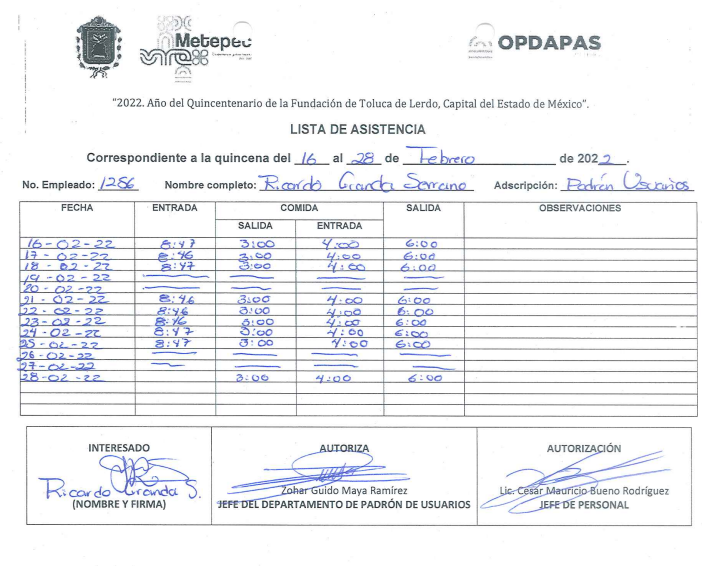 Metepec
OPDAPAS
"2022. Año del Quincentenario de la Fundación de Toluca de Lerdo, Capital del Estado de México".
LISTA DE ASISTENCIA
Correspondiente a la quincena del 16 al 28 de Febrero de 2022.
No. Empleado: 1286 Nombre completo: Ricardo Granda Serrano Adscripción: Padrón Usuarios
FECHA ENTRADA COMIDA SALIDA OBSERVACIONES
SALIDA ENTRADA
16-02-22 8:47 3:00 4:00 6:00
17-02-22 8:46 3:00 4:00 6:00
18-02-22 8:47 3:00 4:00 6:00
19-02-22
20-02-22
21-02-22 8:46 3:00 4:00 6:00
22-02-22 8:46 3:00 4:00 6:00
23-02-22 8:46 3:00 4:00 6:00
24-02-22 8:47 3:00 4:00 6:00
25-02-22 8:47 3:00 4:00 6:00
26-02-22
27-02-22
28-02-22 3:00 4:00 6:00
INTERESADO AUTORIZA AUTORIZACIÓN
Ricardo Granda S. Zohar Guido Maya Ramírez Lic. Cesar Mauricio Bueno Rodríguez
(NOMBRE Y FIRMA) JEFE DEL DEPARTAMENTO DE PADRÓN DE USUARIOS JEFE DE PERSONAL